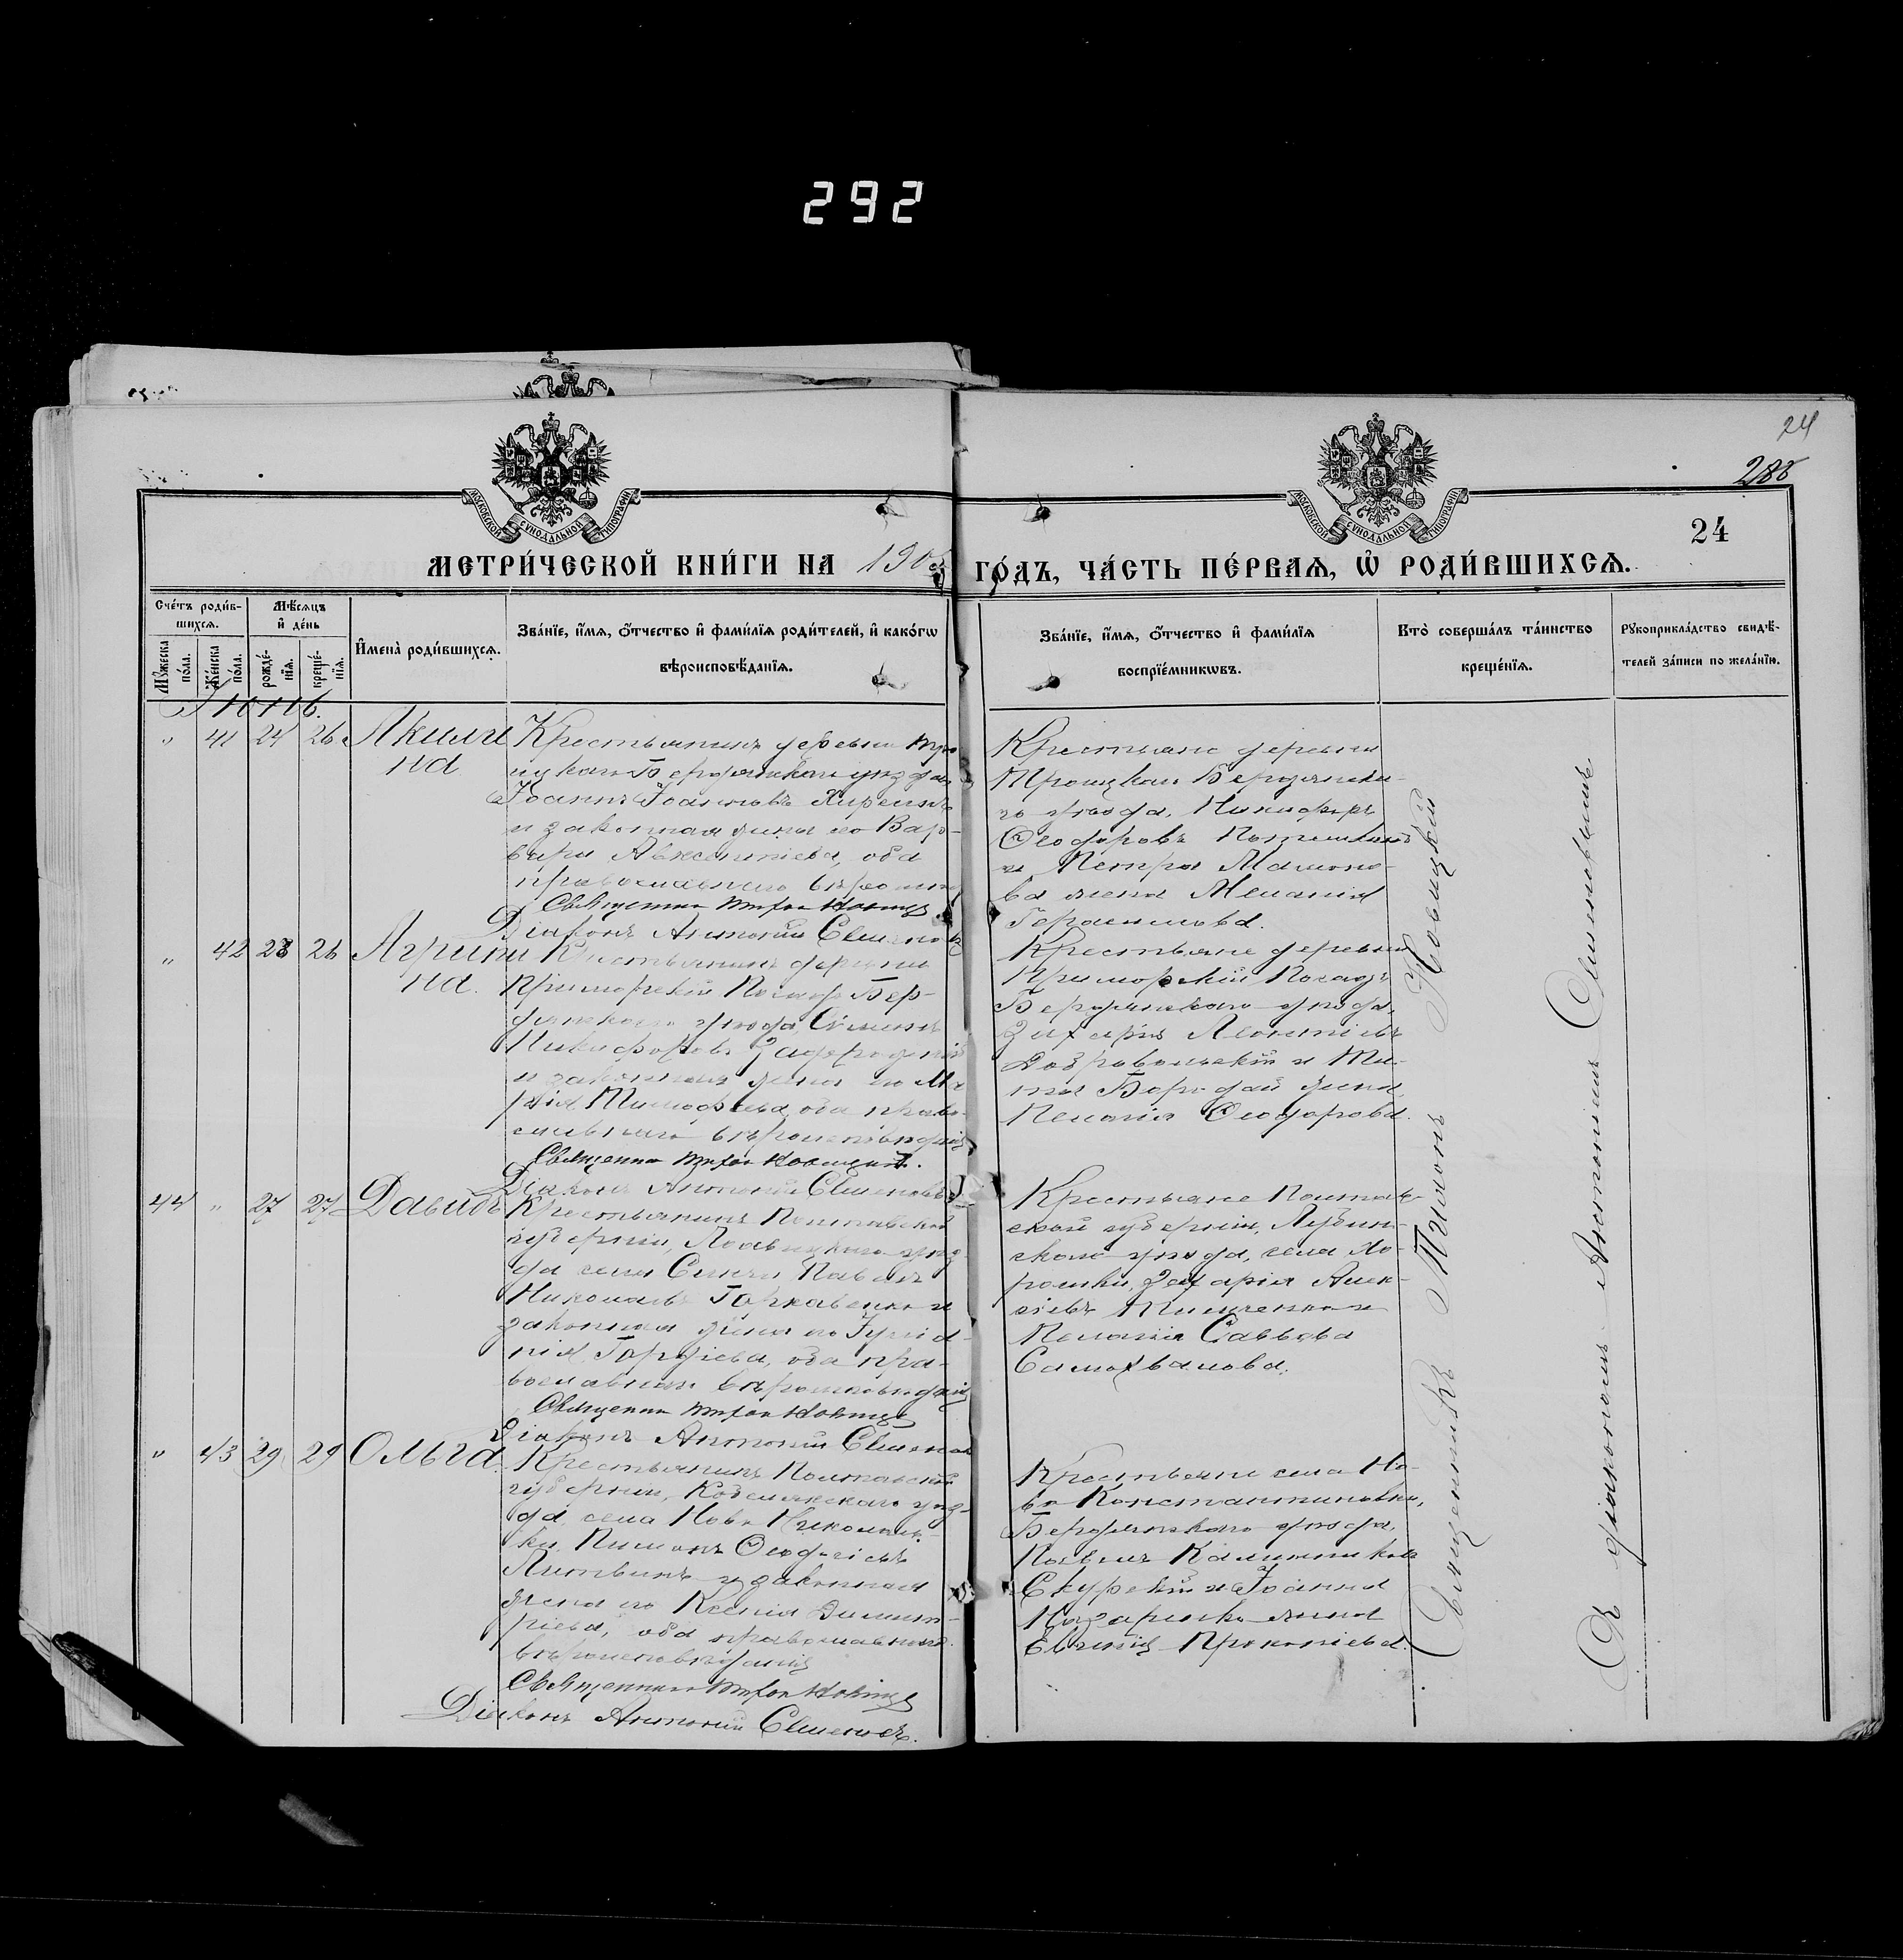 292
24
288
24
МОСКОВСКОЙ СѴНОДАЛЬНОЙ ТИПОГРАФІИ
МОСКОВСКОЙ СѴНОДАЛЬНОЙ ТИПОГРАФІИ
МЕТРИ́ЧЕСКОЙ КНИ́ГИ НА 190 ГО́ДЪ, ЧА́СТЬ ПЕ́РВАѦ, Ѡ҆ РОДИ́ВШИХСѦ.
Сче́тъ роди́в-
шихсѧ.
Мꙋ́жеска
по́ла.
Же́нска
по́ла.
Мѣ́сѧцъ
и҆ де́нь
рожде́-
нїѧ.
креще́-
нїѧ.
И҆мена̀ роди́вшихсѧ.
Зва́нїе, и҆́мѧ, ѻ҆́тчество и҆ фами́лїѧ роди́телей, и҆ како́гѡ
вѣроисповѣ́данїѧ.
Зва́нїе, и҆́мѧ, ѻ҆́тчество и҆ фами́лїѧ
воспрїе́мникѡвъ.
Кто̀ соверша́лъ та́инство
креще́нїѧ.
Рꙋкоприкла́дство свидѣ́-
телей за́писи по жела́нїю.
" 41 24 26 Акили
на
Крестьянинъ деревни Тро
ицкой Бердянскаго уѣзда
Іоаннъ Іоанновъ
и законная жена его Вар-
вара Авксентіева, оба
православнаго
Священник Тихон Новицк
Діаконъ Антоній Семенов
Крестьяне деревни
Троицкой Бердянска-
го уѣзда, Никифоръ
Ѳеодоровъ
и Петра Мамоно-
ва жена Меланія
Герасимова.
" 42 23 26 Агрипи
на.
Крестьянинъ деревни
Приморскій Посадъ Бер-
дянскаго уѣзда, Симеонъ
Никифоровъ
и законная жена его Ма
рія Тимофеева, оба право-
славнаго вѣроисповѣданія
Священник Тихон Новицкій.
Діаконъ Антоній Семеновъ
Крестьяне деревни
Приморскій Посадъ
Бердянскаго уѣзда,
Захарія Леонтіевъ
Добровольскій и Ти-
та Бородай жена,
Пелагія Ѳеодорова.
44 " 27 27 Давидъ
Крестьянинъ Полтавской
губерніи, Лохвицкаго уѣз-
да села Сенчи, Павелъ
Николаевъ Горкавенко и
законная жена его Іулiа-
нія Гордіева, оба пра-
вославнаго вѣроисповѣданія
Священник Тихон Новицк
Діаконъ Антоній Семенов
Крестьяне Полтав-
ской губерніи, Лубен-
скаго уѣзда, села Хо-
рошки, Захарія Алек-
сіевъ и
Пелагія Саввова
Самохвалова.
" 43 29 29 Ольга.
Крестьянинъ Полтавской
губерніи, Кобелякскаго уѣз-
да, села Ново Николаев-
ки, Пименъ Ѳеодосіевъ
Литвинъ и законная
жена его Ксенія Димит-
ріева, оба православнаго
вѣроисповѣданія
Священник Тихон Новицк
Діаконъ Антоній Семеновъ.
Крестьяне села Но-
во Константиновки,
Бердянскаго уѣзда,
Павелъ Калинников
Скурскій и Іоанна
Назаренко жена
Евгенія Прокопіева.
Священникъ Тихонъ Новицкій
Съ діакономъ Антоніемъ Семеновымъ